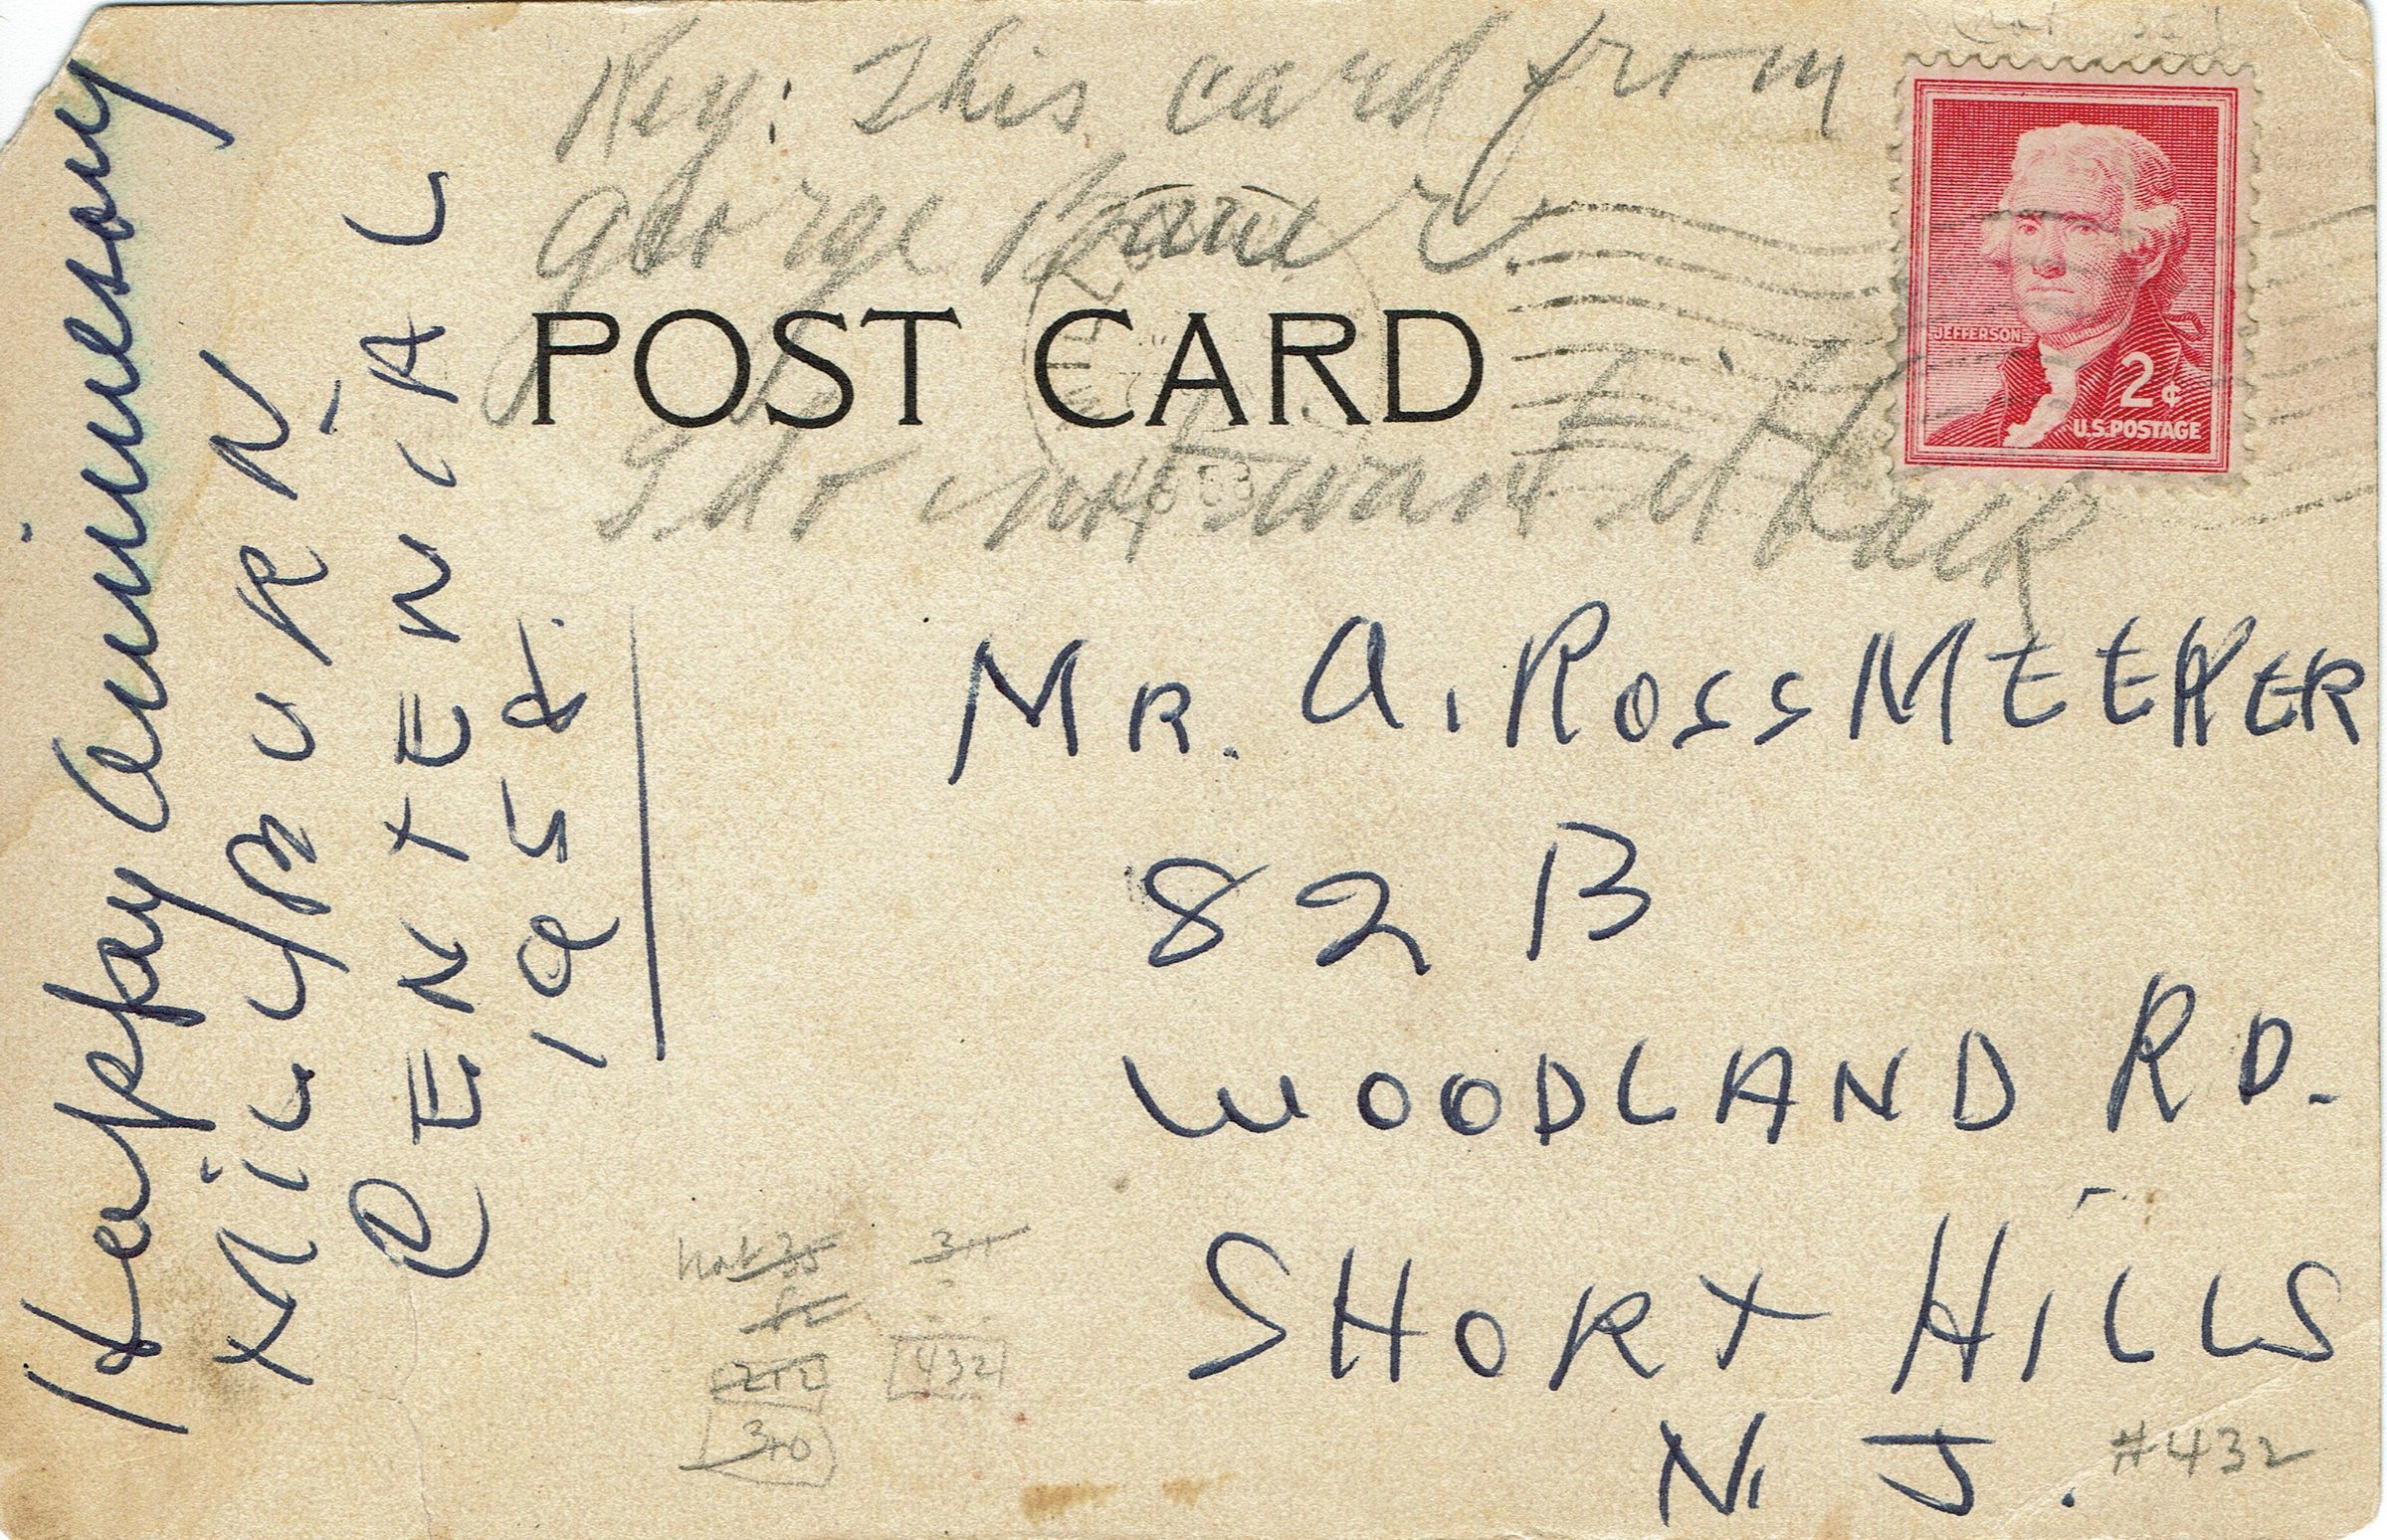 Key: This card from
George
I do not want it back
POST CARD
JEFFERSON
2¢
U.S. POSTAGE
Happy Anniversary
MiLLBURN
CENTENiAL
1957.
MR. A. ROSS MEEKER
82 B
WOODLAND RD.
SHORT HiLLS
N. J.
#432
not 35
31
432